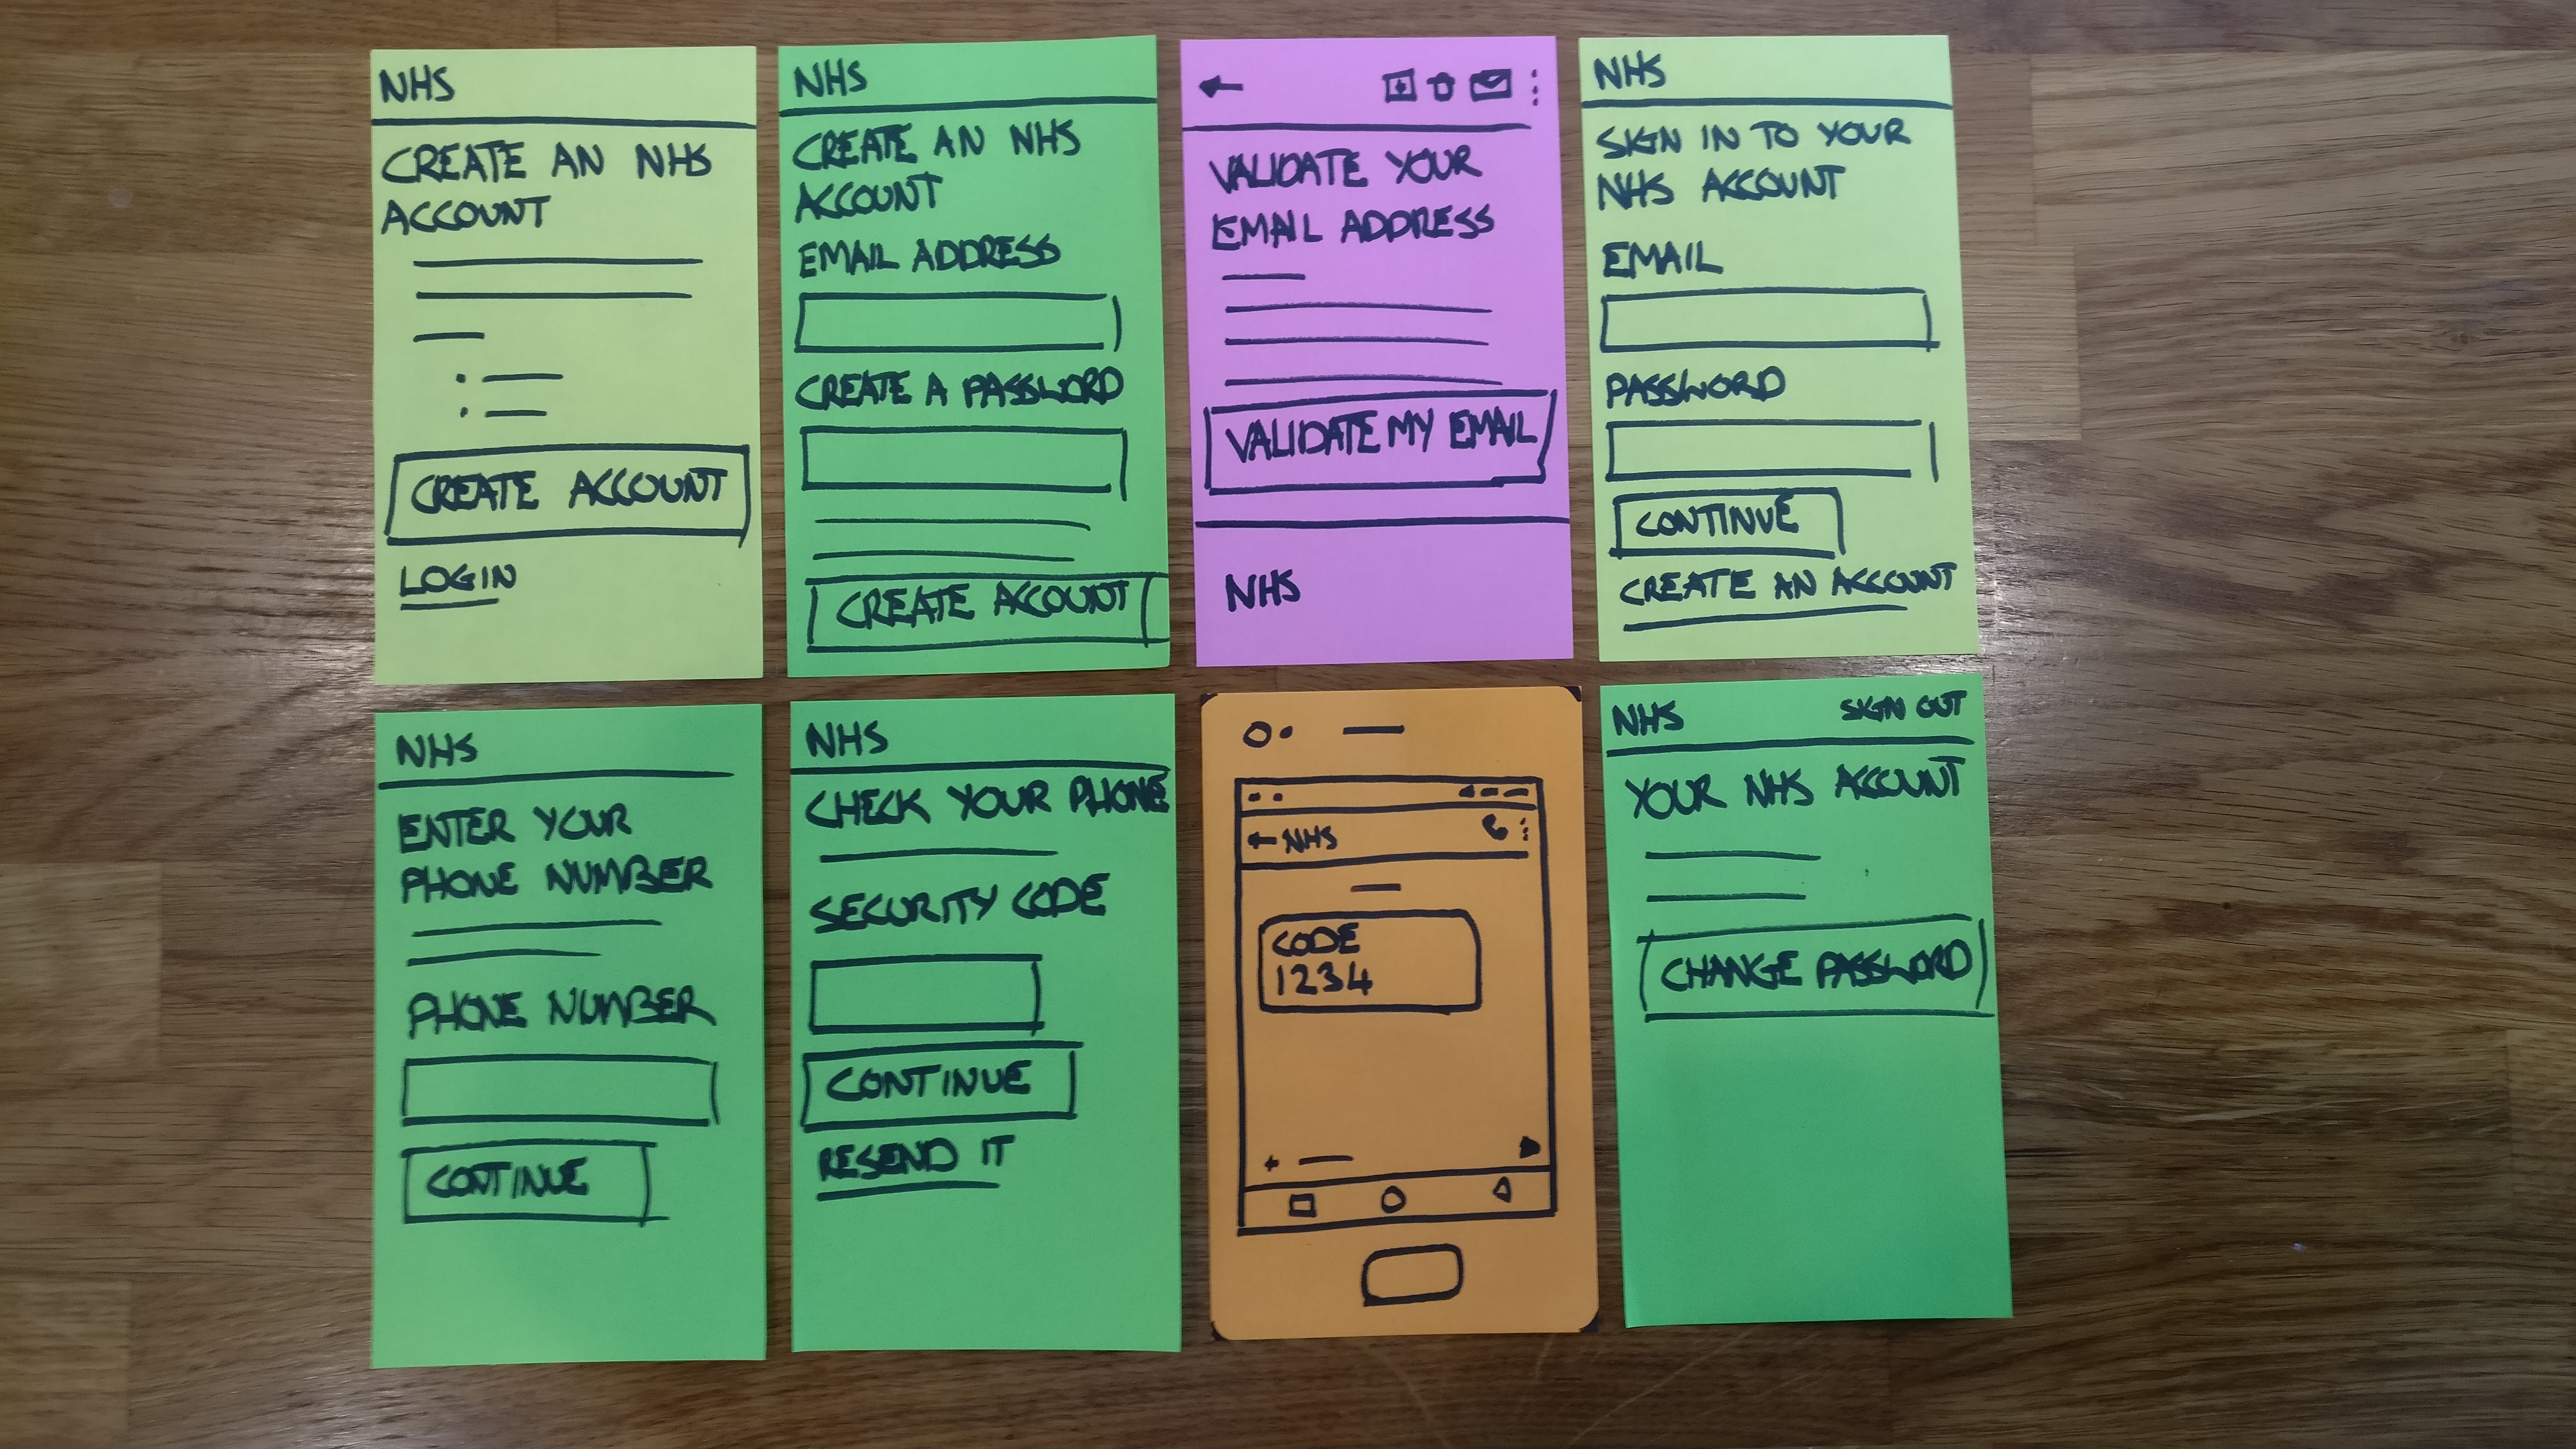 NHS
CREATE AN NHS
ACCOUNT
CREATE ACCOUNT
LOGIN
NHS
CREATE AN NHS
ACCOUNT
EMAIL ADDRESS
CREATE A PASSWORD
CREATE ACCOUNT
VALIDATE YOUR
EMAIL ADDRESS
VALIDATE MY EMAIL
NHS
NHS
SIGN IN TO YOUR
NHS ACCOUNT
EMAIL
PASSWORD
CONTINUE
CREATE AN ACCOUNT
NHS
ENTER YOUR
PHONE NUMBER
PHONE NUMBER
CONTINUE
NHS
CHECK YOUR PHONE
SECURITY CODE
CONTINUE
RESEND IT
NHS
CODE
1234
NHS SIGN OUT
YOUR NHS ACCOUNT
CHANGE PASSWORD